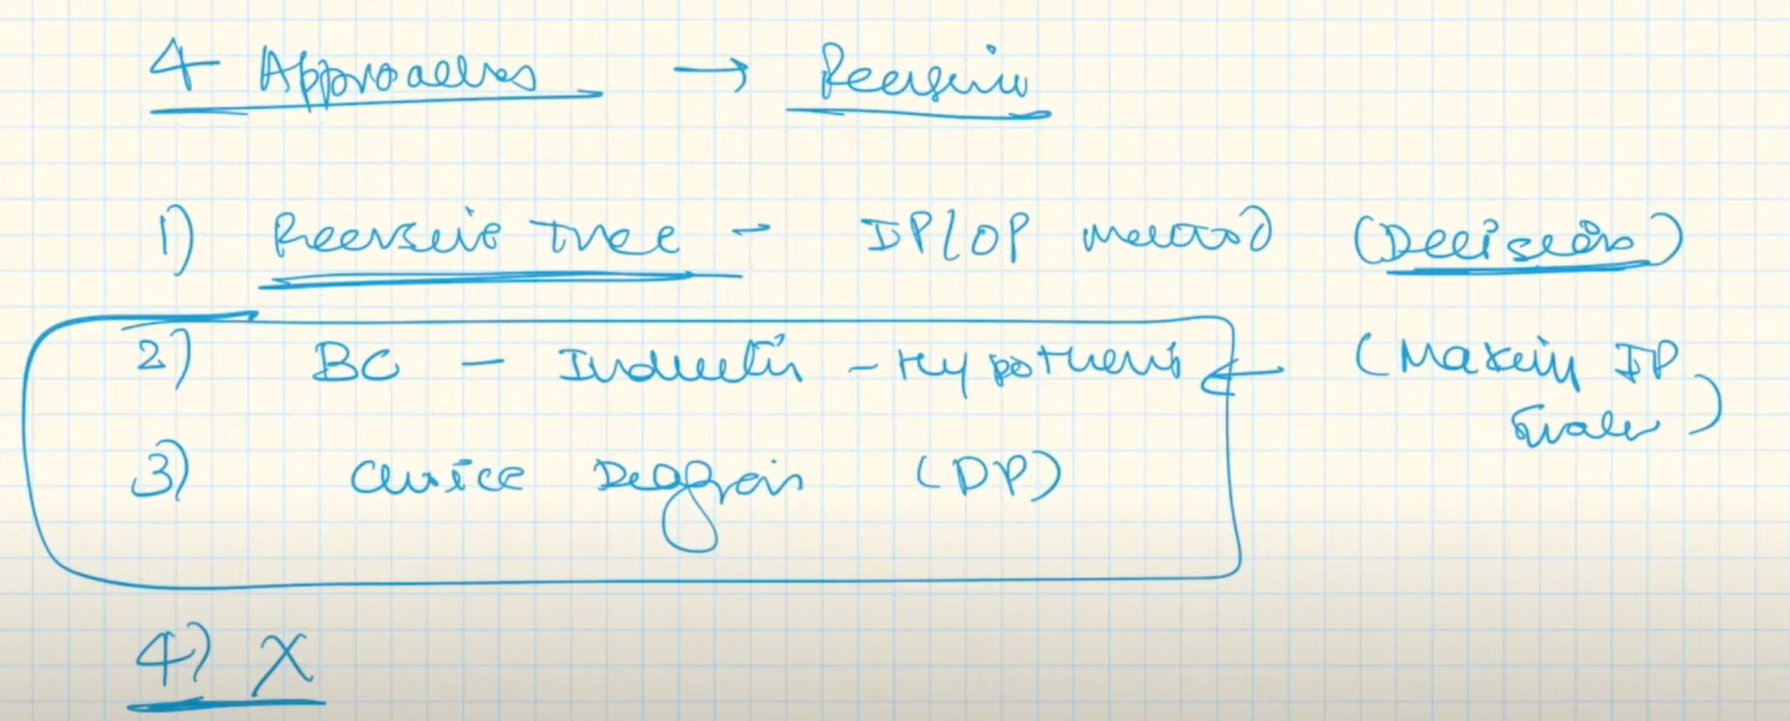 4 Approaches → Recursion
1) Recursive Tree - IP/OP method (Decision)
2) BC - Induction - Hypothesis ← (Making IP
Smaller)
3) Choice Diagram (DP)
4) X